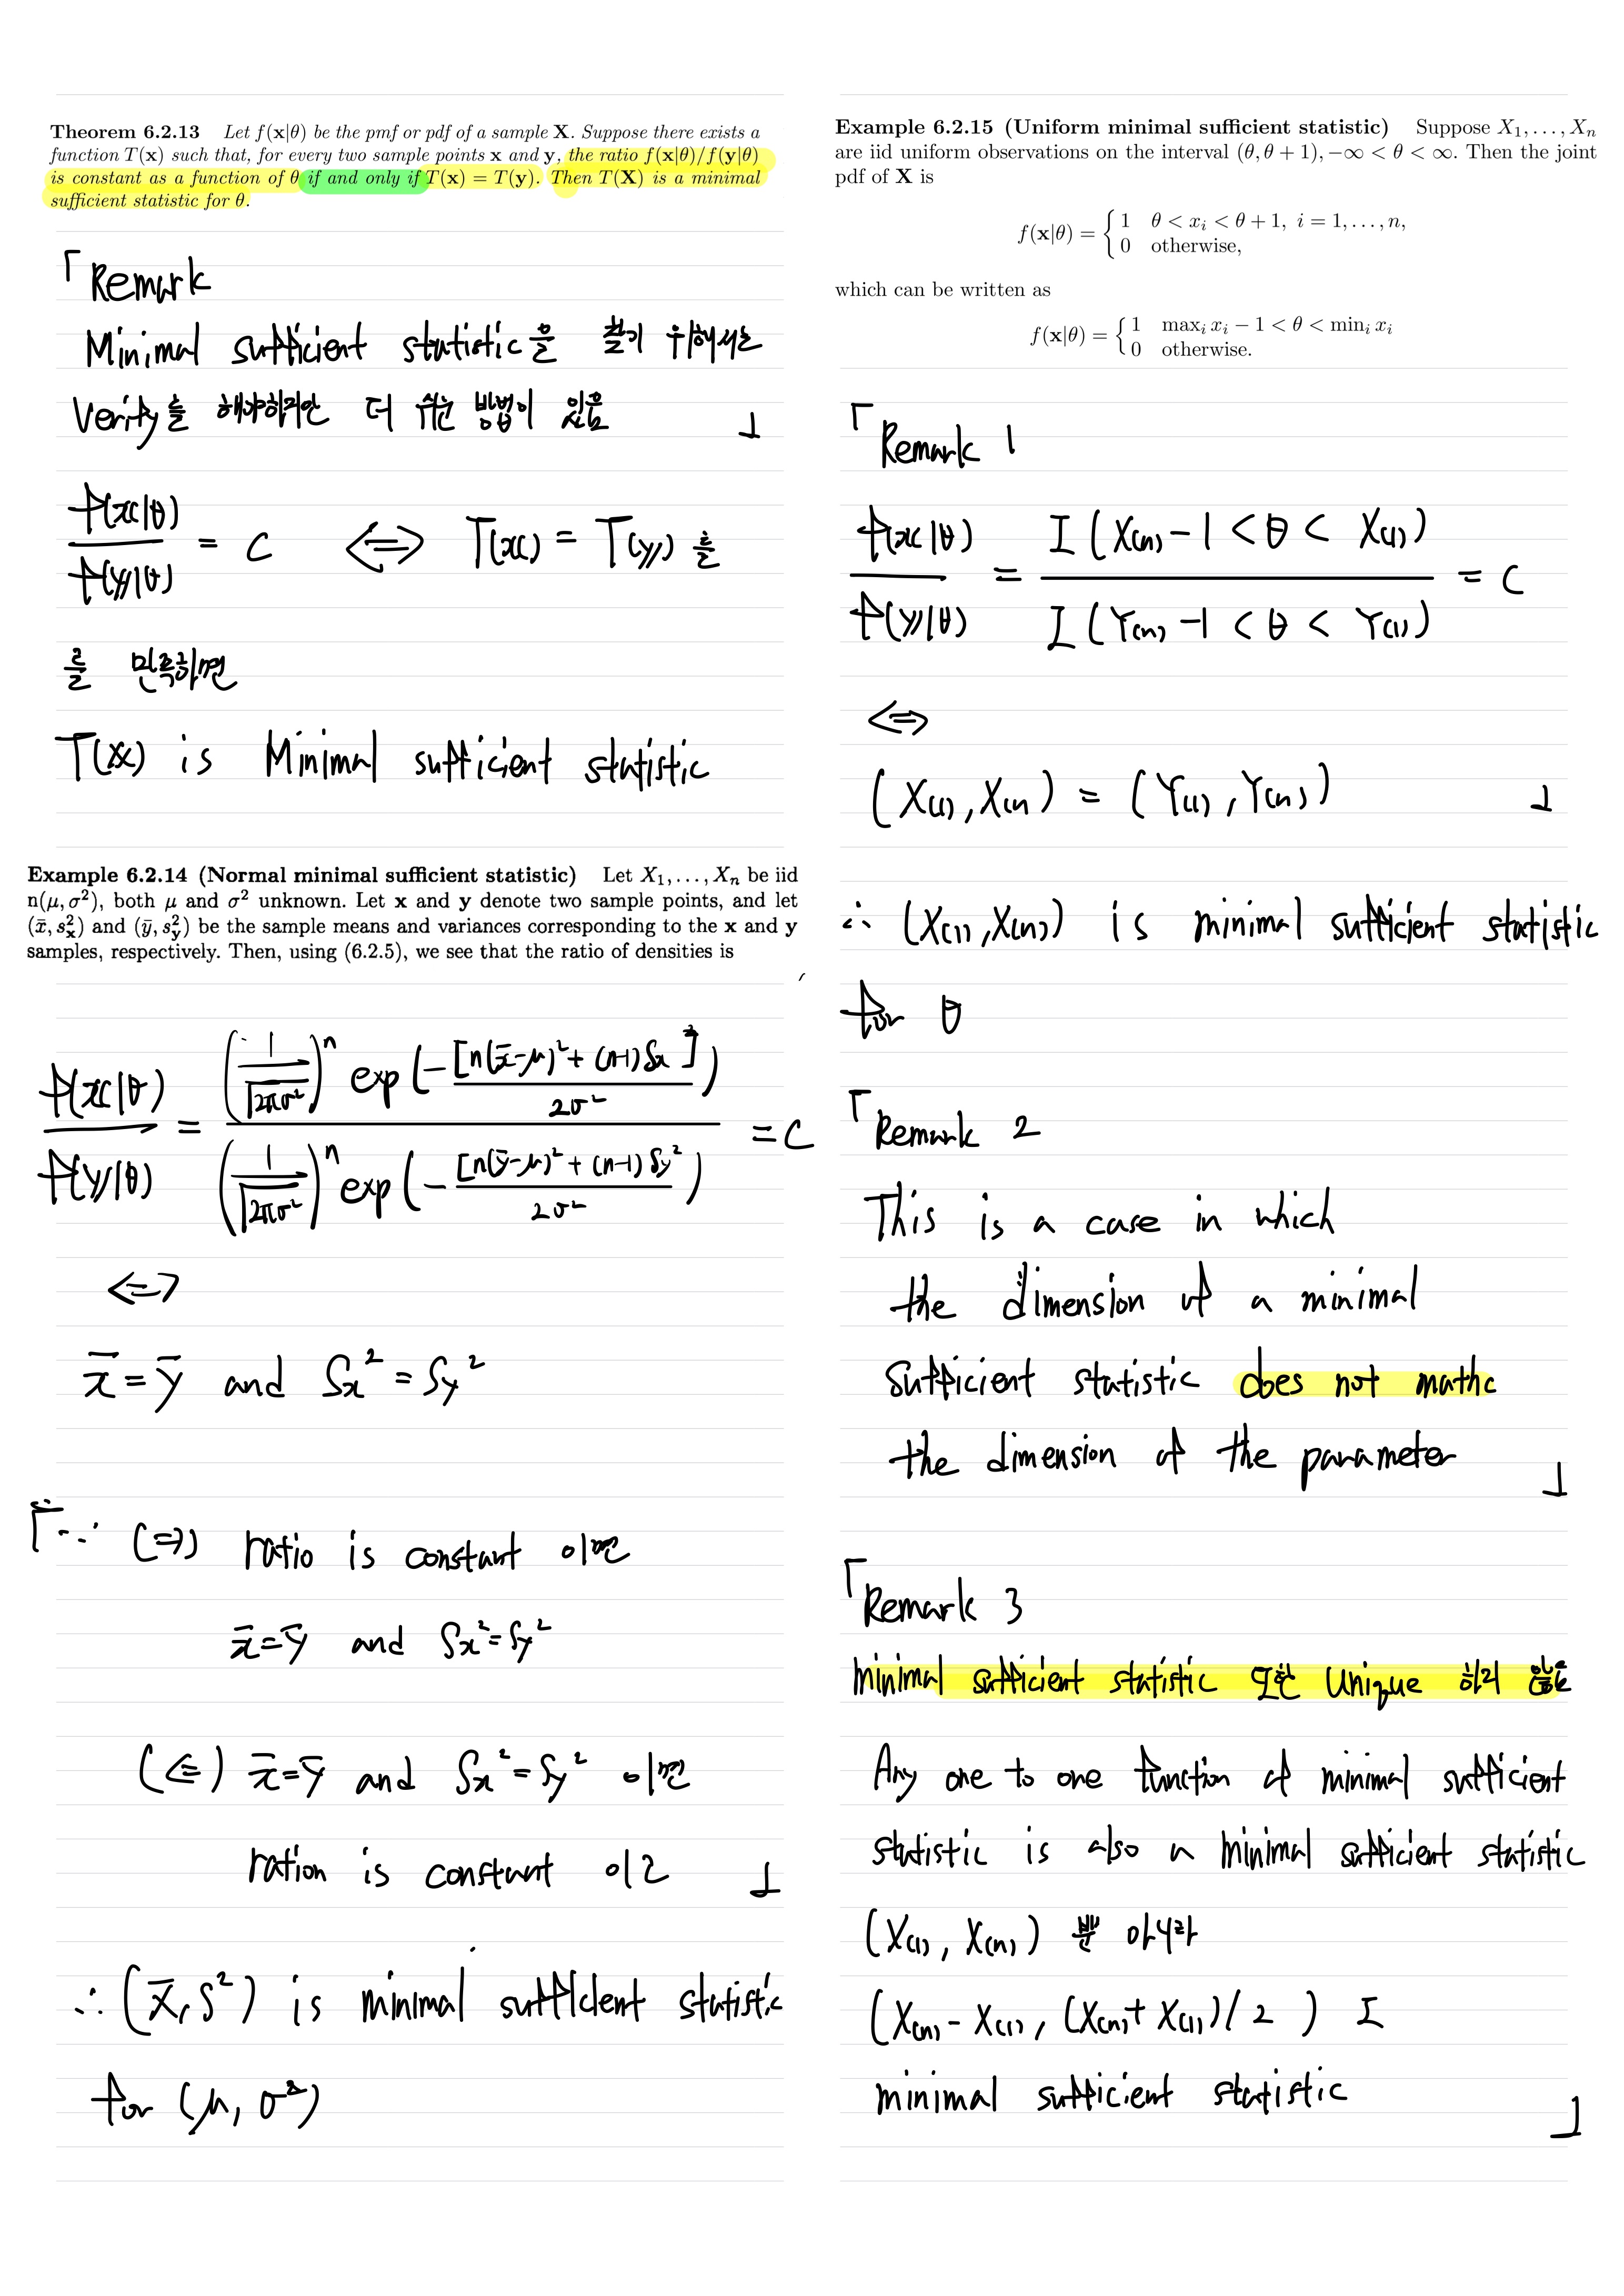 Theorem 6.2.13 Let f(x|θ) be the pmf or pdf of a sample X. Suppose there exists a
function T(x) such that, for every two sample points x and y, the ratio f(x|θ)/f(y|θ)
is constant as a function of θ if and only if T(x) = T(y). Then T(X) is a minimal
sufficient statistic for θ.
「Remark
Minimal sufficient statistic을 찾기 위해서는
Verify를 해야하지만 더 쉬운 방법이 있음 」
f(x|θ) / f(y|θ) = c ⇔ T(x) = T(y) 를
를 만족하면
T(X) is Minimal sufficient statistic
Example 6.2.14 (Normal minimal sufficient statistic) Let X₁, . . . , Xₙ be iid
n(μ, σ²), both μ and σ² unknown. Let x and y denote two sample points, and let
(x̄, s²ₓ) and (ȳ, s²ᵧ) be the sample means and variances corresponding to the x and y
samples, respectively. Then, using (6.2.5), we see that the ratio of densities is
f(x|θ) / f(y|θ) = (1/√2πσ²)ⁿ exp(-[n(x̄-μ)² + (n-1)Sx²]/2σ²) / (1/√2πσ²)ⁿ exp(-[n(ȳ-μ)² + (n-1)Sy²]/2σ²) = c
⇔
x̄ = ȳ and Sx² = Sy²
「∵ (⇒) ratio is constant 이면
x̄ = ȳ and Sx² = Sy²
(⇐) x̄ = ȳ and Sx² = Sy² 이면
ration is constant 이다 」
∴ (X̄, S²) is minimal sufficient statistic
for (μ, σ²)
Example 6.2.15 (Uniform minimal sufficient statistic) Suppose X₁, . . . , Xₙ
are iid uniform observations on the interval (θ, θ + 1), −∞ < θ < ∞. Then the joint
pdf of X is
f(x|θ) = { 1 θ < xᵢ < θ + 1, i = 1, . . . , n,
0 otherwise,
which can be written as
f(x|θ) = { 1 maxᵢ xᵢ − 1 < θ < minᵢ xᵢ
0 otherwise.
「Remark 1
f(x|θ) / f(y|θ) = I(X(n) - 1 < θ < X(1)) / I(Y(n) - 1 < θ < Y(1)) = c
⇔
(X(1), X(n)) = (Y(1), Y(n)) 」
∴ (X(1), X(n)) is minimal sufficient statistic
for θ
「Remark 2
This is a case in which
the dimension of a minimal
sufficient statistic does not mathc
the dimension of the parameter 」
「Remark 3
minimal sufficient statistic 또한 Unique 하지 않음
Any one to one function of minimal sufficient
statistic is also a minimal sufficient statistic
(X(1), X(n)) 뿐 아니라
(X(n) - X(1), (X(n) + X(1))/2) 도
minimal sufficient statistic 」